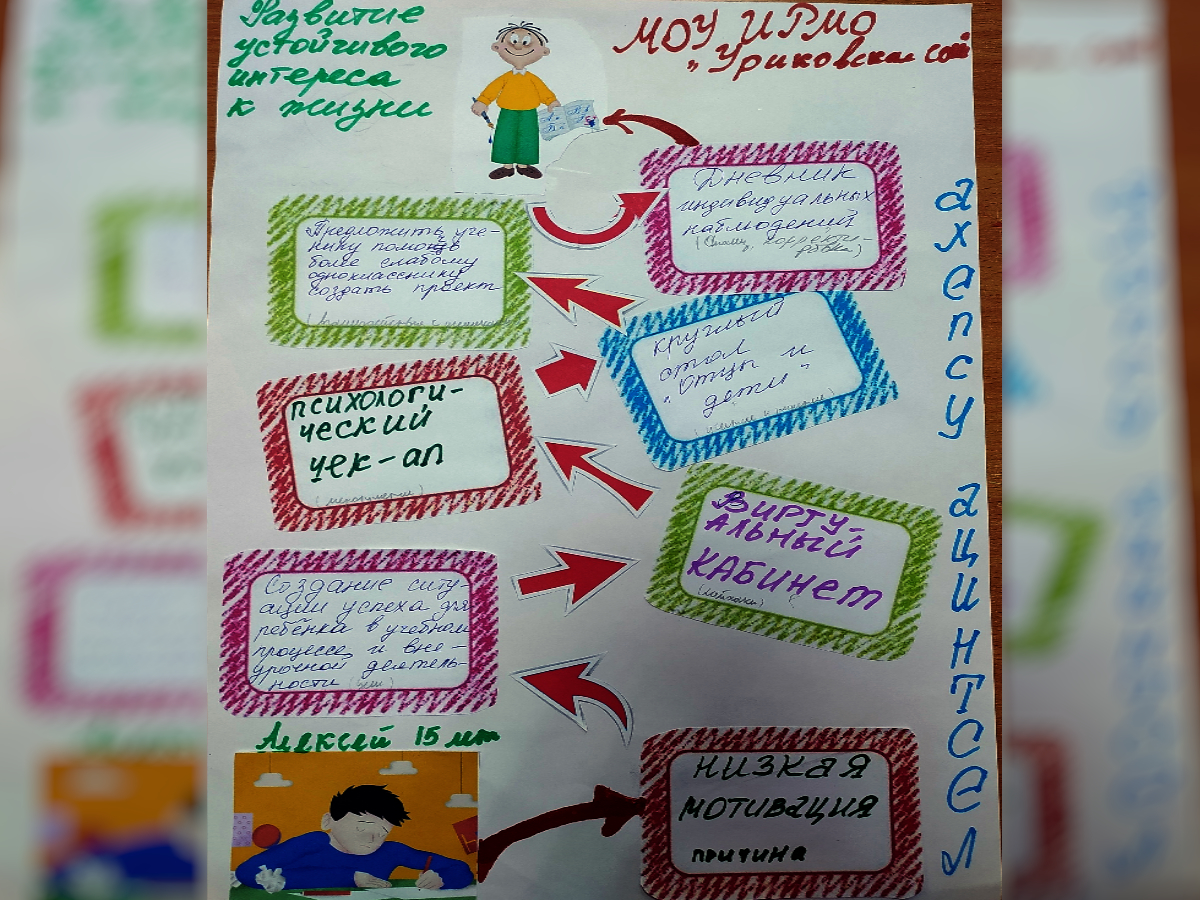 Развитие
устойчивого
интереса
к жизни
МОУ ИРМО
"Уриковская сош
Дневник
индивидуальных
наблюдений
корректи-
ровка)
Предложить уче-
нику помощь
более слабому
однокласснику
создать проект
круглый
стол
"Отцы и
дети"
психологи-
ческий
чек-ап
Вирту-
альный
кабинет
(лайфхаки)
Создание ситу-
ации успеха для
ребёнка в учебном
процессе и вне-
урочной деятель-
ности
Алексей 15 лет
низкая
мотивация
причина
лестница успеха